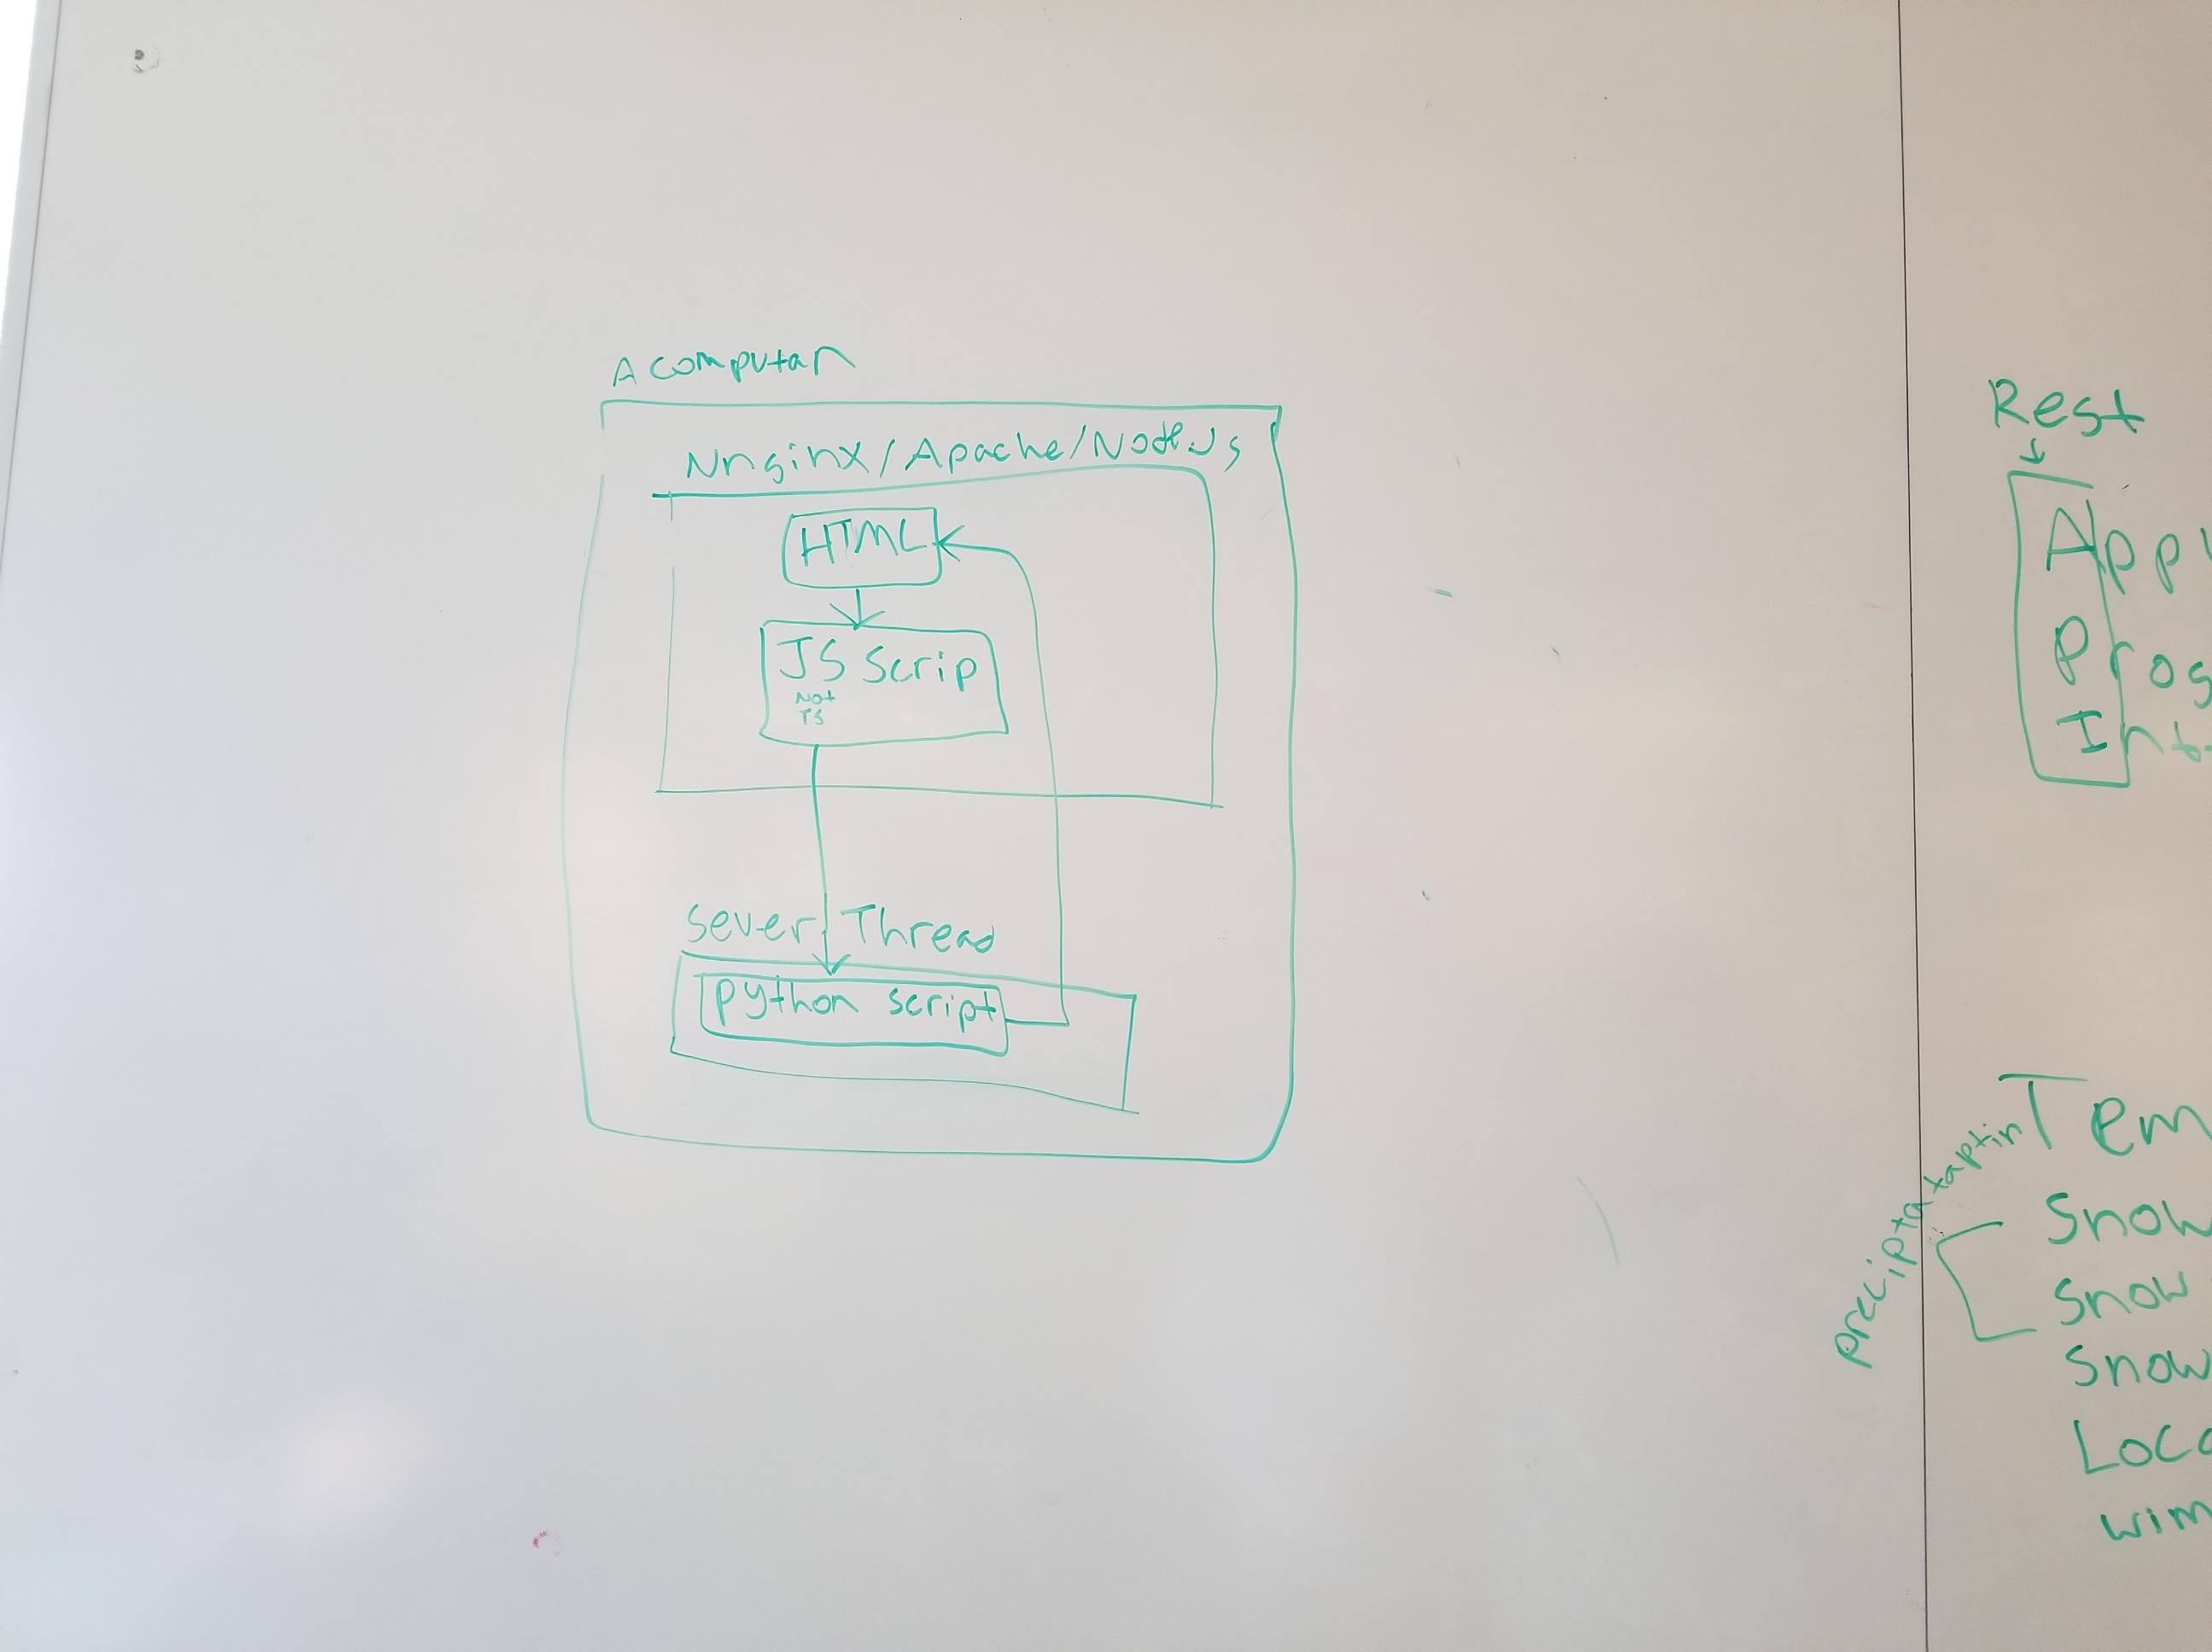 A computar
Nnginx/Apache/Node.Js
HTML
JS Scrip
Not
TS
Sever Thread
python script
Rest
App
Prog
Int
precipitataptin
Tem
Snow
Snow
Snow
Loca
wim